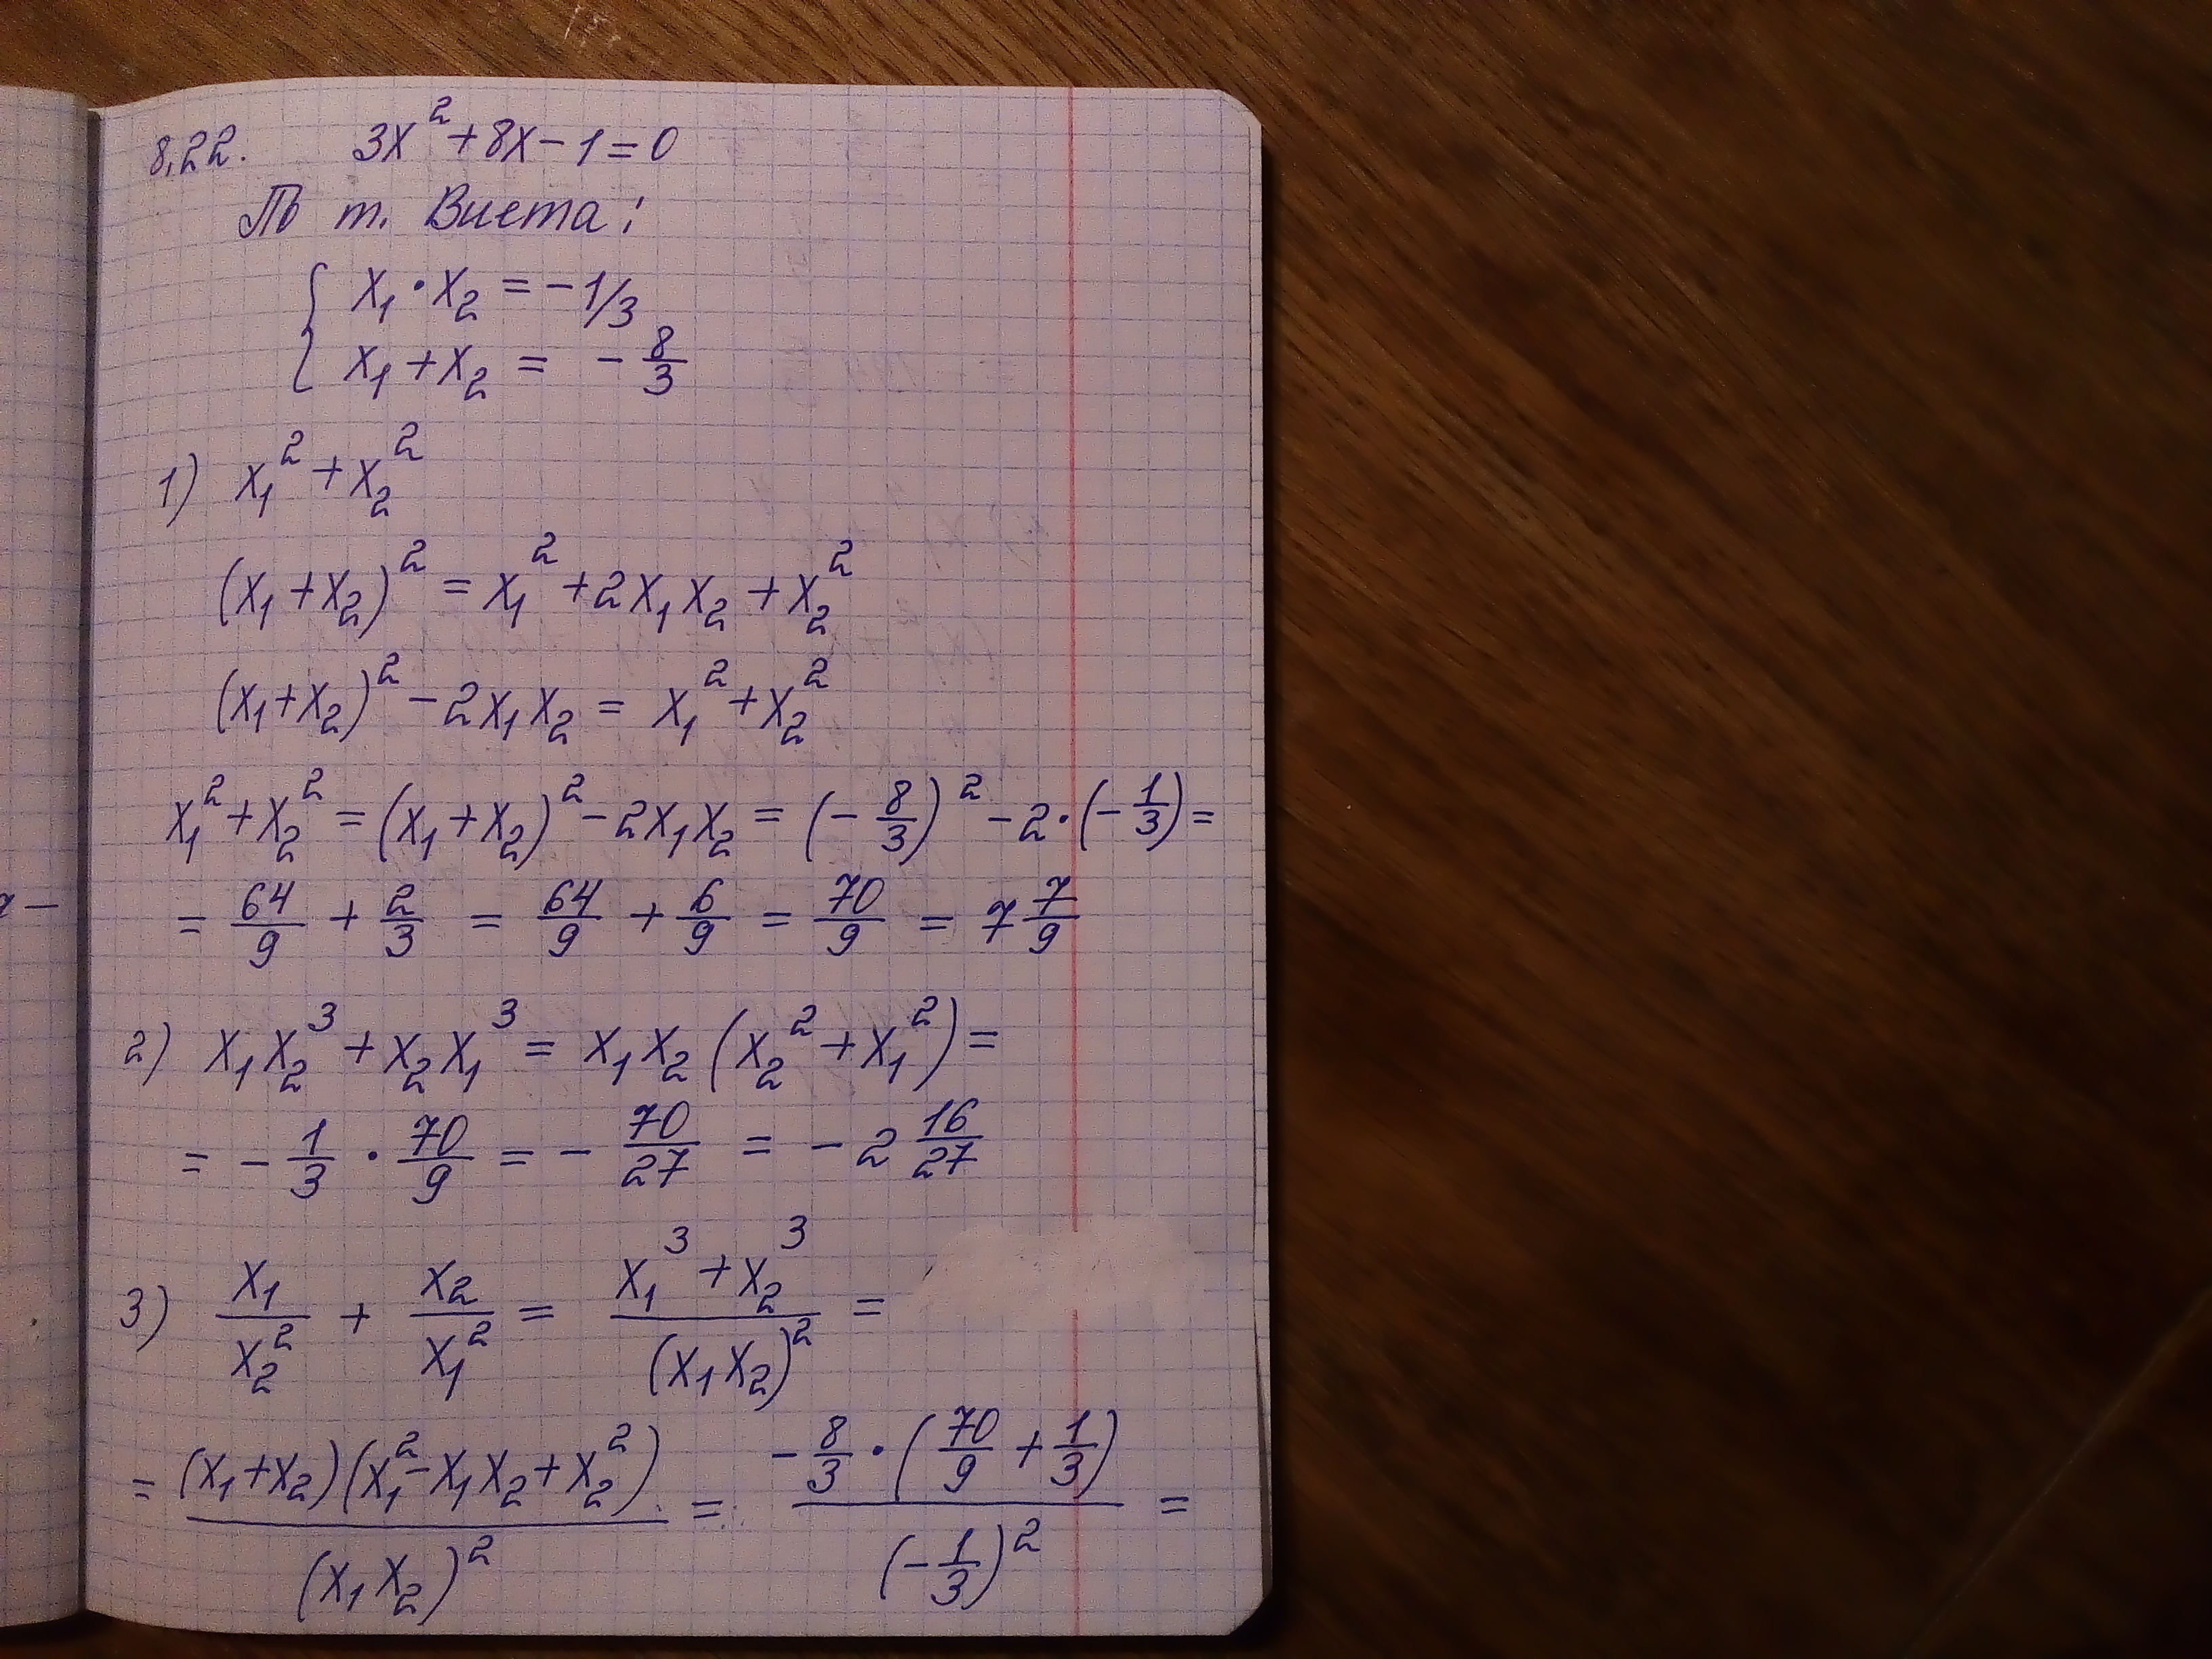 8.22. 3x² + 8x - 1 = 0
По т. Виета:
x₁ · x₂ = -1/3
x₁ + x₂ = - 8/3
1) x₁² + x₂²
(x₁ + x₂)² = x₁² + 2x₁x₂ + x₂²
(x₁ + x₂)² - 2x₁x₂ = x₁² + x₂²
x₁² + x₂² = (x₁ + x₂)² - 2x₁x₂ = (- 8/3)² - 2 · (- 1/3) =
= 64/9 + 2/3 = 64/9 + 6/9 = 70/9 = 7 7/9
2) x₁x₂³ + x₂x₁³ = x₁x₂(x₂² + x₁²) =
= - 1/3 · 70/9 = - 70/27 = - 2 16/27
3) x₁/x₂² + x₂/x₁² = (x₁³ + x₂³)/(x₁x₂)² =
= (x₁ + x₂)(x₁² - x₁x₂ + x₂²)/(x₁x₂)² = - 8/3 · (70/9 + 1/3)/(- 1/3)² =